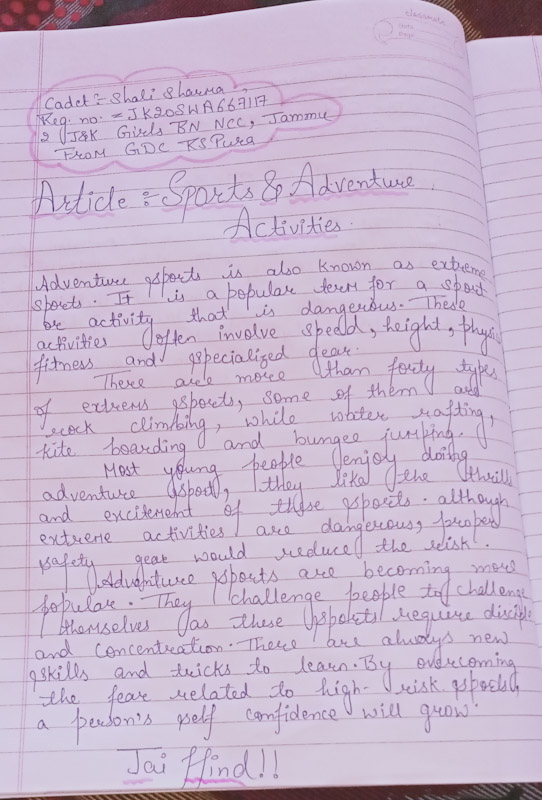 classmate
Date
Page
Cadet :- Shali Sharma
Reg. no. = JK20SWA667117
2 J&K Girls BN NCC, Jammu
From GDC RS Pura
Article :- Sports & Adventure
Activities
Adventure sports is also known as extreme
sports. It is a popular term for a sport
or activity that is dangerous. These
activities often involve speed, height, physi
fitness and specialized gear.
There are more than forty types
of extrems sports, some of them are
rock climbing, while water rafting,
kite boarding and bungee jumping.
Most young people enjoy doing
adventure sport, they like the thrill
and excitement of these sports. although
extreme activities are dangerous, proper
safety gear would reduce the risk.
Adventure sports are becoming more
popular. They challenge people to challenge
themselves as these sports require discipl
and concentration. There are always new
skills and tricks to learn. By overcoming
the fear related to high-risk sports,
a person's self confidence will grow.
Jai Hind!!